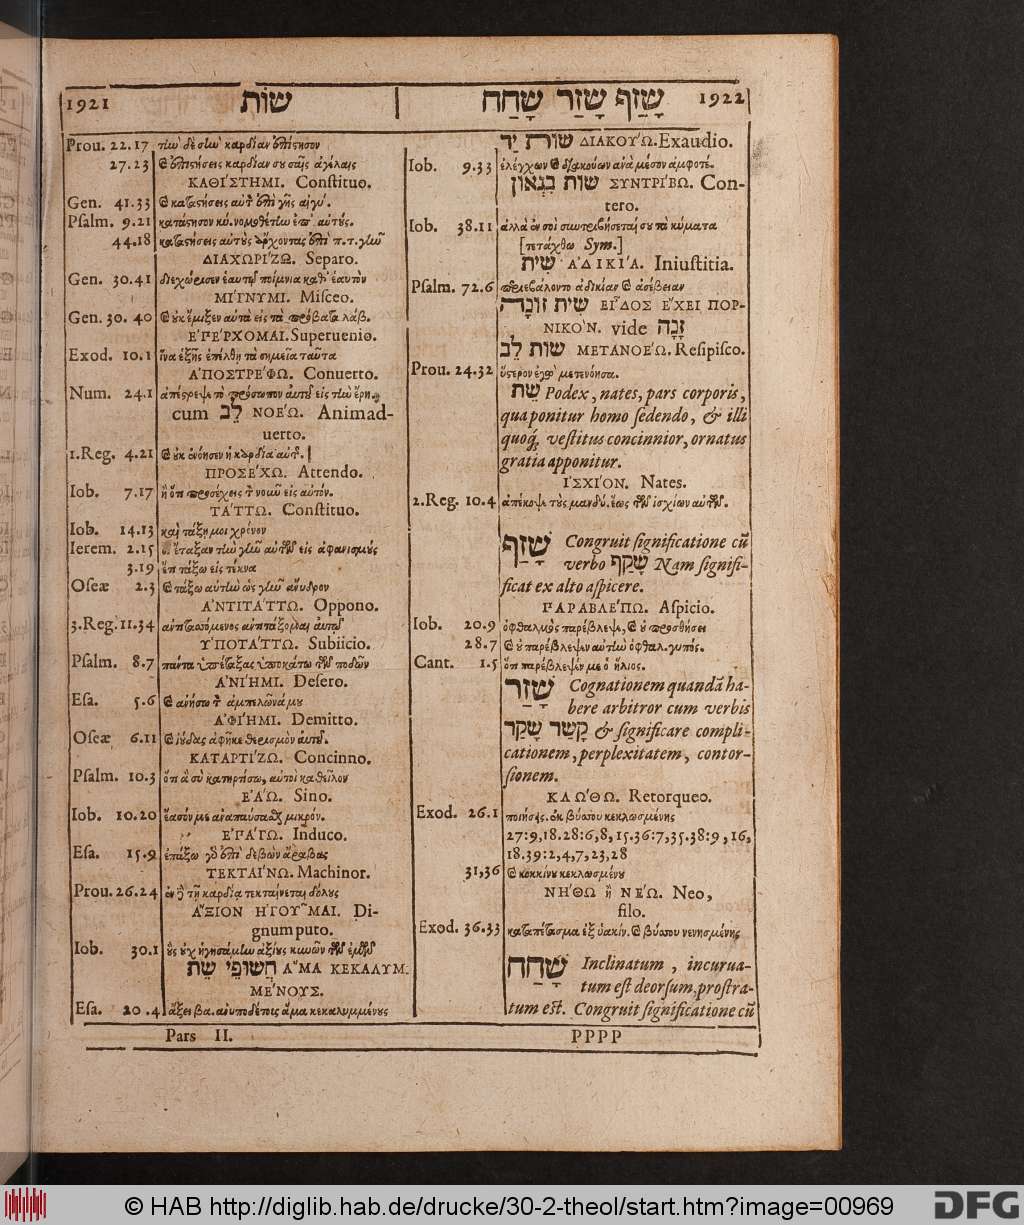 1921 שׁוֹת
שָׁזַף שָׁזַר שָׁחַח 1922
Prou. 22.17 τἰω δὲ σἰω καρδίαν ἐπίστησον
27.23 καὶ ἐπιστήσεις καρδίαν σου σαῖς ἀγέλαις
ΚΑΘΙΣΤΗΜΙ. Constituo.
Gen. 41.33 καὶ καταστήσεις αὐτὸν ἐπὶ γῆς αἰγύ.
Psalm. 9.21 κατάστησον κύ. νομοθέτἰω ἐπ' αὐτούς.
44.18 καταστήσεις αὐτοὺς ἄρχοντας ἐπὶ π. τ. γἰω
ΔΙΑΧΩΡΙΖΩ. Separo.
Gen. 30.41 διεχώρισεν ἑαυτῷ ποίμνια καθ' ἑαυτὸν
ΜΙΓΝΥΜΙ. Misceo.
Gen. 30. 40 καὶ οὐκ ἔμιξεν αὐτὰ εἰς τὰ πρόβατα λάβ.
ΕΠΕΡΧΟΜΑΙ. Superuenio.
Exod. 10.1 ἵνα ἑξῆς ἐπέλθῃ τὰ σημεῖα ταῦτα
ΑΠΟΣΤΡΕΦΩ. Conuerto.
Num. 24.1 ἀπέστρεψε τὸ πρόσωπον αὐτοῦ εἰς τἰω ἔρη.
cum לֵב ΝΟΕΩ. Animad-
uerto.
1.Reg. 4.21 καὶ οὐκ ἐνόησεν ἡ καρδία αὐτ.
ΠΡΟΣΕΧΩ. Attendo.
Iob. 7.17 ἢ ὅτι προσέχεις τ νοῦν εἰς αὐτόν.
ΤΑΤΤΩ. Constituo.
Iob. 14.13 καὶ τάξῃ μοι χρόνον
Ierem. 2.15 οἱ ἔταξαν τἰω γἰω αὐτῶν εἰς ἀφανισμοὺς
3.19 ὅτι τάξω εἰς τέκνα
Oseæ 2.3 καὶ τάξω αὐτἰω ὡς γἰω ἄνυδρον
ΑΝΤΙΤΑΤΤΩ. Oppono.
3.Reg. 11.34 ἀντιτασσόμενος ἀντιτάξομαι αὐτῷ
ΥΠΟΤΑΤΤΩ. Subiicio.
Psalm. 8.7 πάντα ὑπέταξας ὑποκάτω τῶν ποδῶν
ΑΝΙΗΜΙ. Desero.
Esa. 5.6 καὶ ἀνήσω τ ἀμπελῶνά μου
ΑΦΙΗΜΙ. Demitto.
Oseæ 6.11 καὶ ἰούδας ἀφῆκε θερισμὸν αὐτῷ.
ΚΑΤΑΡΤΙΖΩ. Concinno.
Psalm. 10.3 ὅτι ἃ σὺ κατηρτίσω, αὐτοὶ καθεῖλον
ΕΑΩ. Sino.
Iob. 10.20 ἔασόν με ἀναπαύσασθαι μικρόν.
ΕΠΑΓΩ. Induco.
Esa. 15.9 ἐπάξω γὸ ἐπὶ δεβὼν ἄραβας
ΤΕΚΤΑΙΝΩ. Machinor.
Prou. 26.24 ἐν τῇ καρδίᾳ τεκταίνεται δόλους
ἌΞΙΟΝ ἩΓΟΥ͂ΜΑΙ. Di-
gnum puto.
Iob. 30.1 οὓς οὐχ ἡγησάμἰω ἀξίους κυνῶν τῶν ἐμῶν
חֲשׂוּפֵי שֵׁת ἍΜΑ ΚΕΚΑΛΥΜ.
ΜΕΝΟΥΣ.
Esa. 20.4 ἄξει βα. ἀνυποδέτους ἅμα κεκαλυμμένους
שׁוּת יַד ΔΙΑΚΟΥΩ. Exaudio.
Iob. 9.33 ἐλέγχων καὶ διακούων ἀνὰ μέσον ἀμφοτέ.
שׁוּת בִּגְאוֹן ΣΥΝΤΡΙΒΩ. Con-
tero.
Iob. 38.11 ἀλλὰ ἐν σοὶ συντριβήσεται σου τὰ κύματα
[τετάχθω Sym.]
שִׁית ἈΔΙΚΙΑ. Iniustitia.
Psalm. 72.6 περιεβάλοντο ἀδικίαν καὶ ἀσέβειαν
שִׁית זוֹנָה ΕΙΔΟΣ ΕΧΕΙ ΠΟΡ-
ΝΙΚΟΝ. vide זָנָה
שׁוּת לֵב ΜΕΤΑΝΟΕΩ. Resipisco.
Prou. 24.32 ὕστερον ἐγὼ μετενόησα.
שֵׁת Podex, nates, pars corporis,
qua ponitur homo sedendo, & illi
quoq́; vestitus concinnior, ornatus
gratia apponitur.
ΙΣΧΙΟΝ. Nates.
2.Reg. 10.4 ἀπέκοψε τοὺς μανδύ. ἕως τῶν ἰσχίων αὐτῶν.
שָׁזַף Congruit significatione cū
verbo שָׁקַף Nam signifi-
ficat ex alto aspicere.
ΠΑΡΑΒΛΕΠΩ. Aspicio.
Iob. 20.9 ὀφθαλμὸς παρέβλεψε, καὶ οὐ προσθήσει
28.7 καὶ οὐ παρέβλεψεν αὐτἰω ὀφθαλ. γυπός.
Cant. 1.5 ὅτι παρέβλεψέν με ὁ ἥλιος.
שָׁזַר Cognationem quandā ha-
bere arbitror cum verbis
קָשַׁר שָׁקַר & significare compli-
cationem, perplexitatem, contor-
sionem.
ΚΛΩΘΩ. Retorqueo.
Exod. 26.1 ποιήσεις. ἐκ βύσσου κεκλωσμένης
27:9, 18. 28:6, 8, 15. 36:7, 35. 38:9, 16,
18. 39:2, 4, 7, 23, 28
31, 36 καὶ κοκκίνου κεκλωσμένου
ΝΗΘΩ ἢ ΝΕΩ. Neo,
filo.
Exod. 36.33 καταπέτασμα ἐξ ὑακίν. καὶ βύσσου νενησμένης
שָׁחַח Inclinatum, incurua-
tum est deorsum, prostra-
tum est. Congruit significatione cū
Pars II. PPPP
© HAB http://diglib.hab.de/drucke/30-2-theol/start.htm?image=00969
DFG